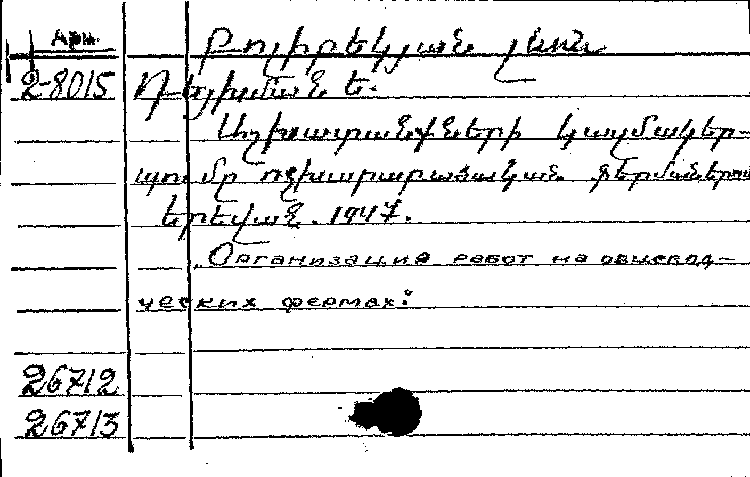 Арм.
2-8015
Աշխատանքների կազմակեր-
պումը ոչխարաբուծական ֆերմաներում
Երեվան. 1947.
"Организация работ на овцевод-
ческих фермах".
26712
26713